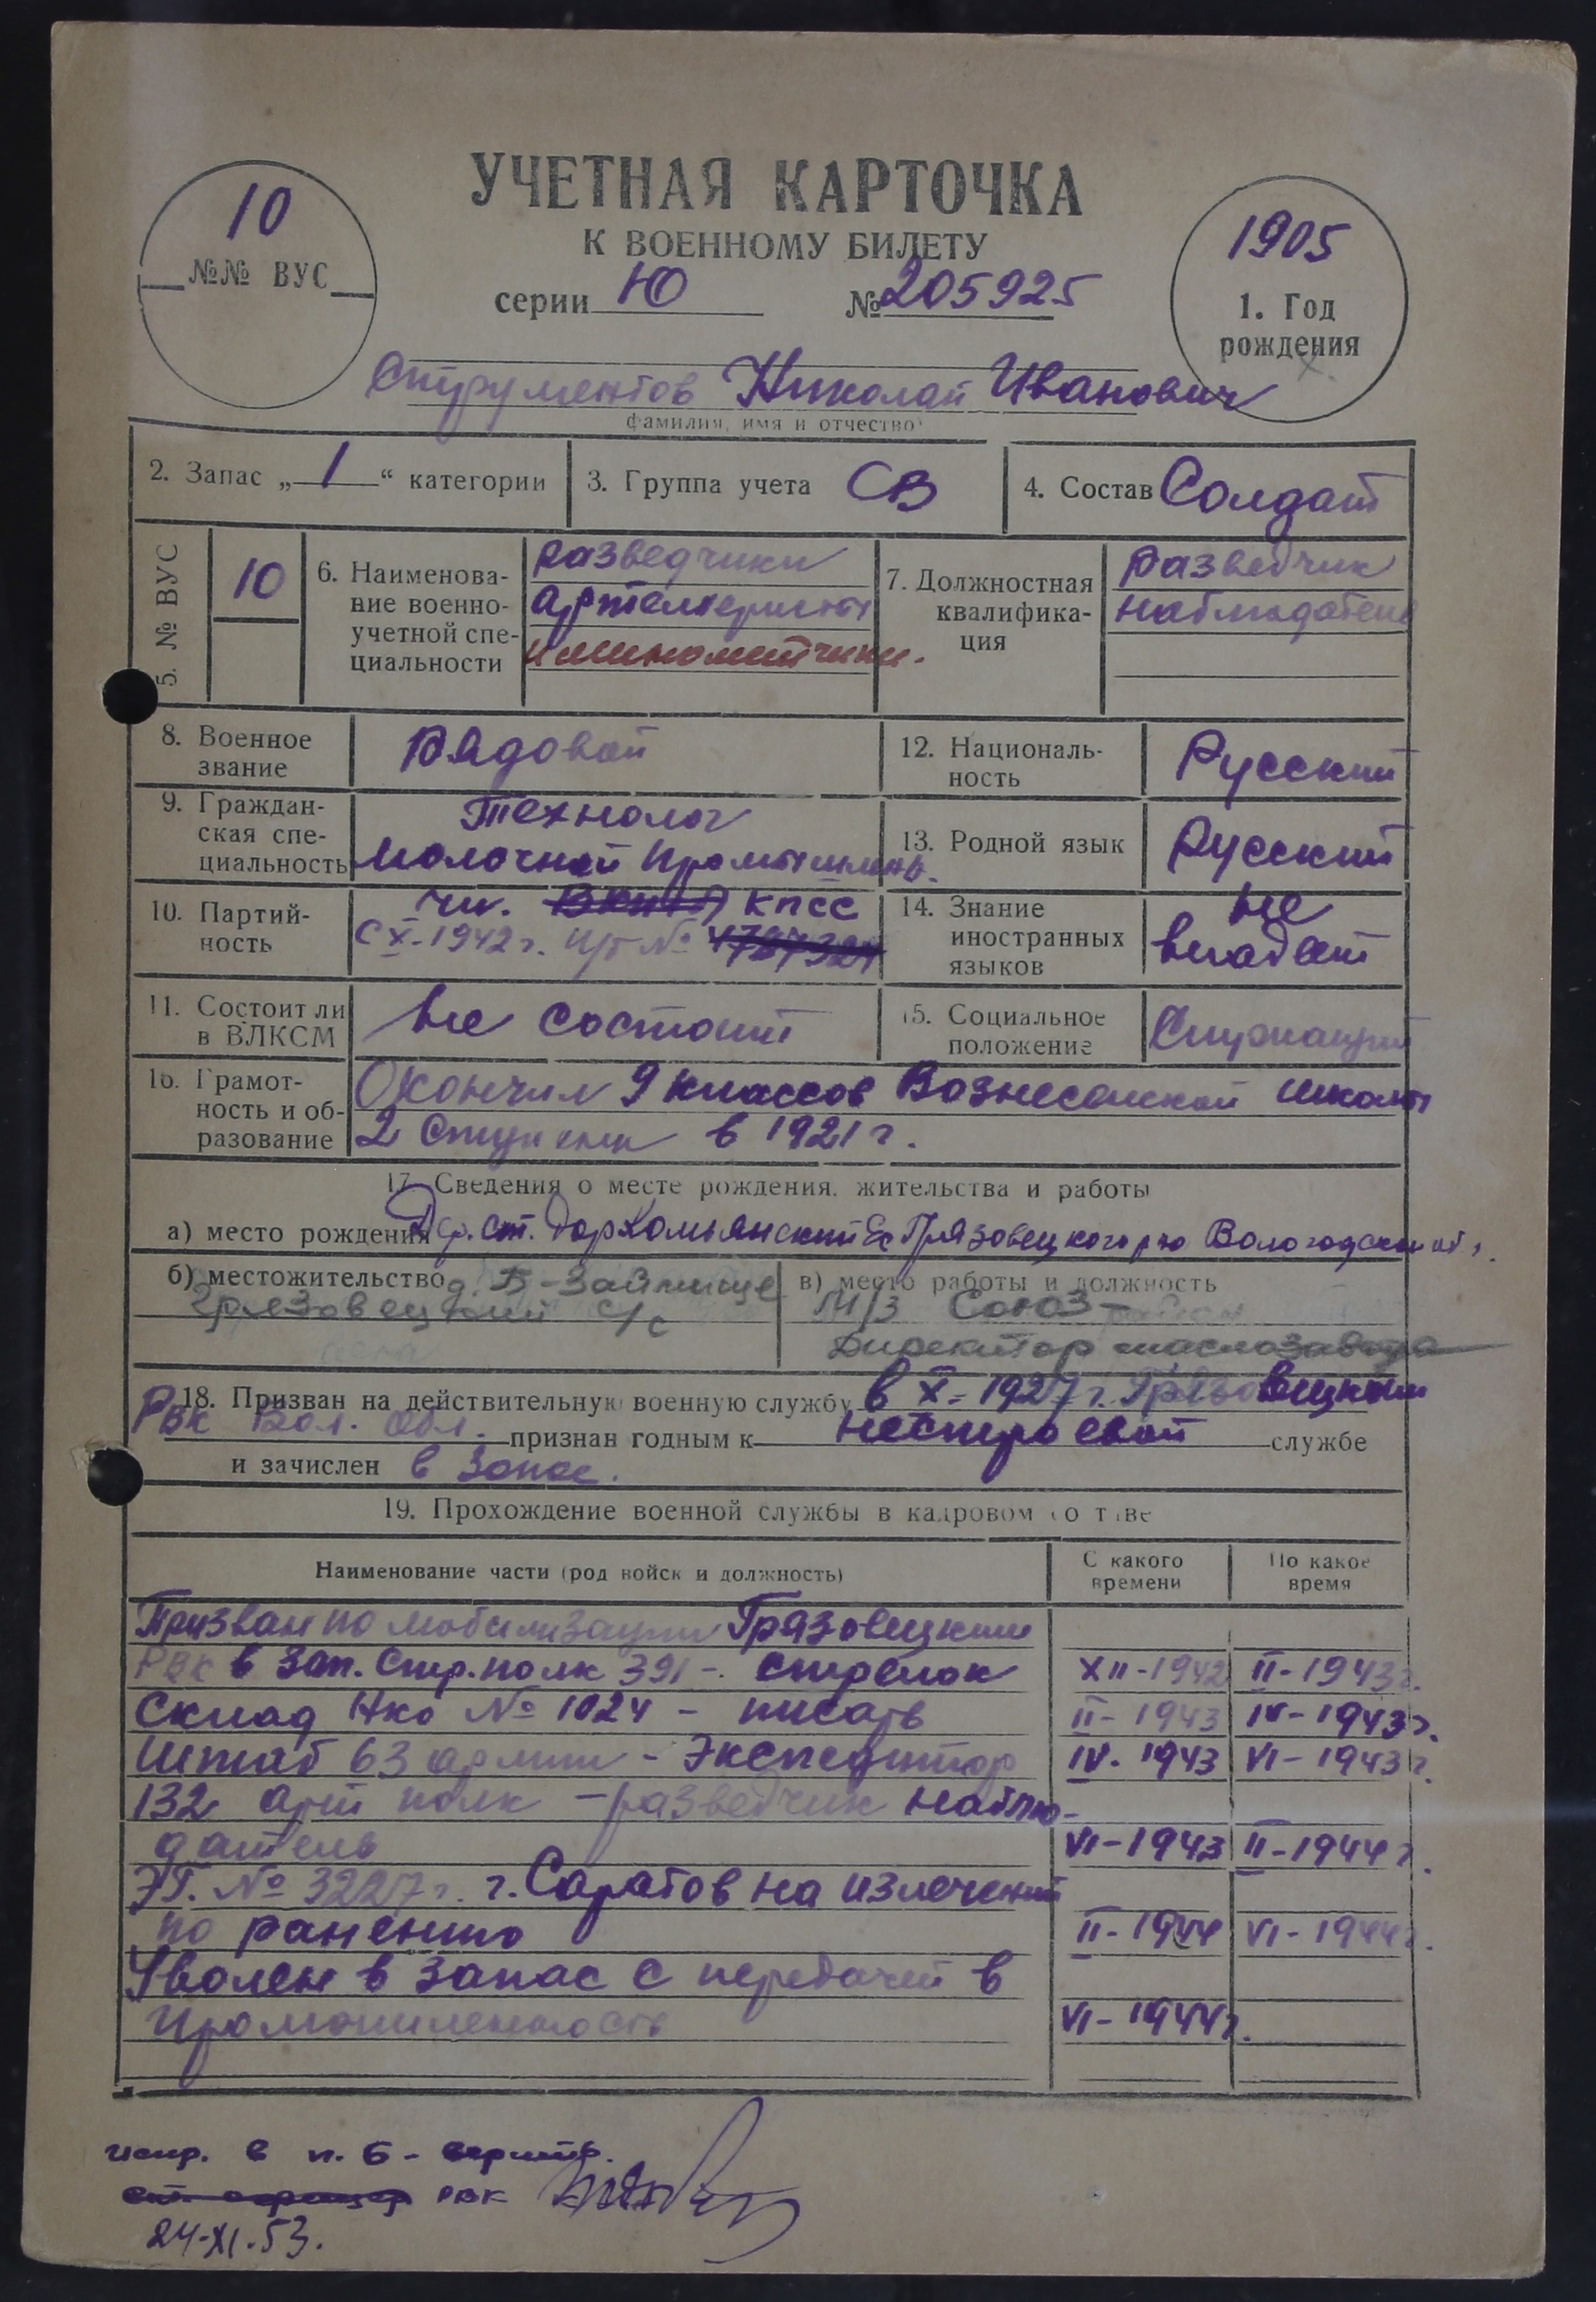 УЧЕТНАЯ КАРТОЧКА
К ВОЕННОМУ БИЛЕТУ
серии Ю № 205925
10
№№ ВУС
1905
1. Год
рождения
Струментов Николай Иванович
фамилия, имя и отчество
2. Запас „1“ категории
3. Группа учета СВ
4. Состав Солдат
5. № ВУС
10
6. Наименова-
ние военно-
учетной спе-
циальности
разведчики
артиллеристы
и минометчики.
7. Должностная
квалифика-
ция
разведчик
наблюдатель
8. Военное
звание
Рядовой
12. Националь-
ность
Русский
9. Граждан-
ская спе-
циальность
Технолог
молочной промышлень.
13. Родной язык
Русский
10. Партий-
ность
чл. ВКП(б) КПСС
с X-1942 г. п/б № 4787324
14. Знание
иностранных
языков
не
владеет
11. Состоит ли
в ВЛКСМ
не состоит
15. Социальное
положение
Служащий
16. Грамот-
ность и об-
разование
Окончил 9 классов Вознесенской школы
2 ступени в 1921 г.
17. Сведения о месте рождения, жительства и работы
а) место рождения Грязовецкого р-на Вологодской об.
б) местожительство д. Б-Займище
Грязовецкий с/с
в) место работы и должность
М/З Союз-
Директор маслозавода
18. Призван на действительную военную службу в X-1927 г. Грязовецким
РВК Вол. Обл. признан годным к нестроевой службе
и зачислен в запас.
19. Прохождение военной службы в кадровом составе
Наименование части (род войск и должность)
С какого
времени
По какое
время
Призван по мобилизации Грязовецким
РВК в зап. стр. полк 391 - стрелок XII-1942 II-1943 г.
Склад НКО № 1024 - писарь II-1943 IV-1943 г.
Штаб 63 армии - экспедитор IV.1943 VI-1943 г.
132 арт полк - разведчик наблю-
датель VI-1943 II-1944 г.
ЭГ. № 3227 г. г. Саратов на излечении
по ранению II-1944 VI-1944 г.
Уволен в запас с передачей в
промышленность VI-1944 г.
испр. в п. 6 - верить.
РВК
24-XI.53.